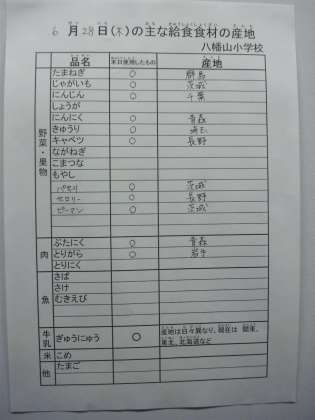 6月28日(木)の主な給食食材の産地
八幡山小学校
品名 本日使用したもの 産地
野菜・果物
たまねぎ ○ 群馬
じゃがいも ○ 茨城
にんじん ○ 千葉
しょうが
にんにく ○ 青森
きゅうり ○ 埼玉
キャベツ ○ 長野
ながねぎ
こまつな
もやし
パセリ ○ 茨城
セロリー ○ 長野
ピーマン ○ 茨城
肉
ぶたにく ○ 青森
とりがら ○ 岩手
とりにく
魚
さば
さけ
むきえび
牛乳 ぎゅうにゅう ○ 産地は日々異なり、現在は 関東、
東北、北海道など
米 こめ
他 たまご